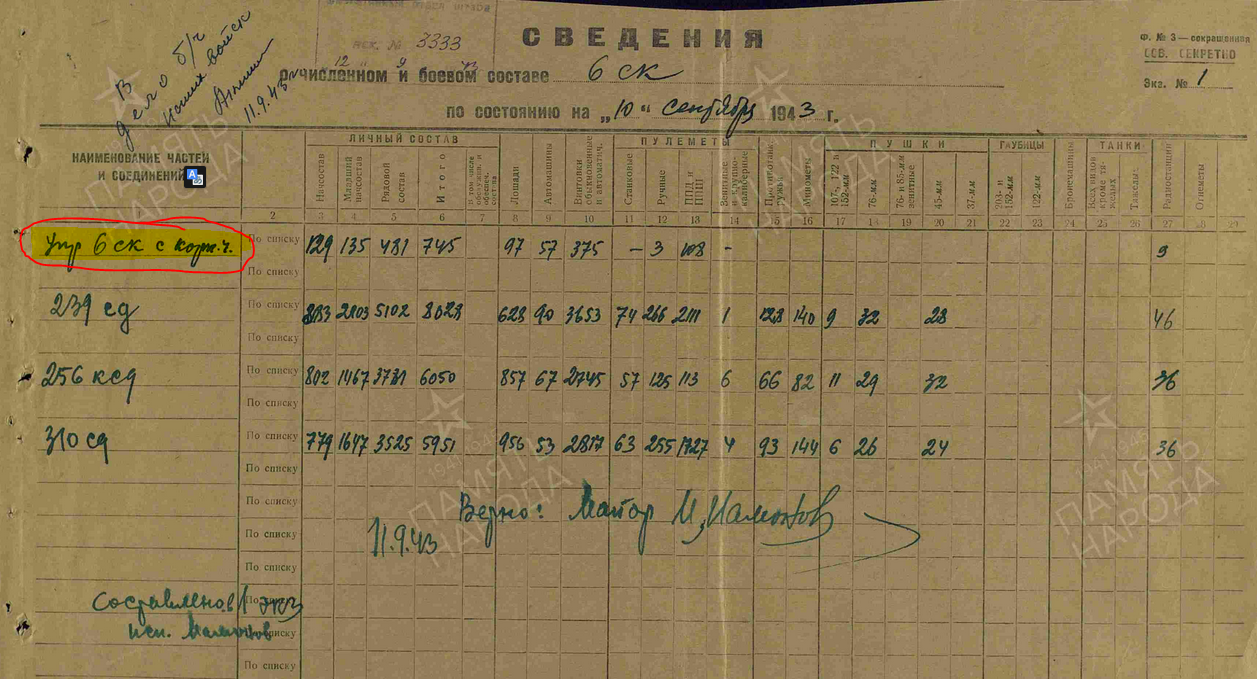 вх. № 3333
12 9 43
СВЕДЕНИЯ
о численном и боевом составе 6 ск
по состоянию на „10" сентября 1943 г.
Ф. № 3 — сокращенная
СОВ. СЕКРЕТНО
Экз. № 1
В
дело б/ч
наших войск
11.9.43
НАИМЕНОВАНИЕ ЧАСТЕЙ И СОЕДИНЕНИЙ
ЛИЧНЫЙ СОСТАВ ПУЛЕМЕТЫ ПУШКИ ГАУБИЦЫ ТАНКИ
Начсостав Младший начсостав Рядовой состав Итого Лошади Автомашины Винтовки обыкновенные и автоматич. Станковые Ручные ППД и ППШ Зенитные и крупнокалиберные Противотанк. ружья Минометы 107-, 122 и 152-мм 76-мм 76- и 85-мм зенитные 45-мм 37-мм 203- и 152-мм 122-мм Бронемашины Всех видов кроме тяжелых Тяжелых Радиостанции Огнеметы
2 3 4 5 6 7 8 9 10 11 12 13 14 15 16 17 18 19 20 21 22 23 24 25 26 27 28 29
Упр 6 ск с корп.ч. По списку 129 135 481 745 97 57 375 – 3 108 – 9
По списку
239 сд По списку 883 2103 5102 8028 628 90 3653 74 266 2111 1 128 140 9 32 28 46
По списку
256 ксд По списку 802 1467 3781 6050 857 67 2745 57 125 113 6 66 82 11 29 32 36
По списку
310 сд По списку 779 1647 3525 5951 956 53 2817 63 255 1727 4 93 144 6 26 24 36
По списку
По списку
Верно: Майор И, Мамонтов
По списку
11.9.43
По списку
Составлено в 1 экз
По списку
исп. Мамонтов
По списку
ПАМЯТЬ НАРОДА
ПАМЯТЬ НАРОДА
ПАМЯТЬ НАРОДА
ПАМЯТЬ НАРОДА